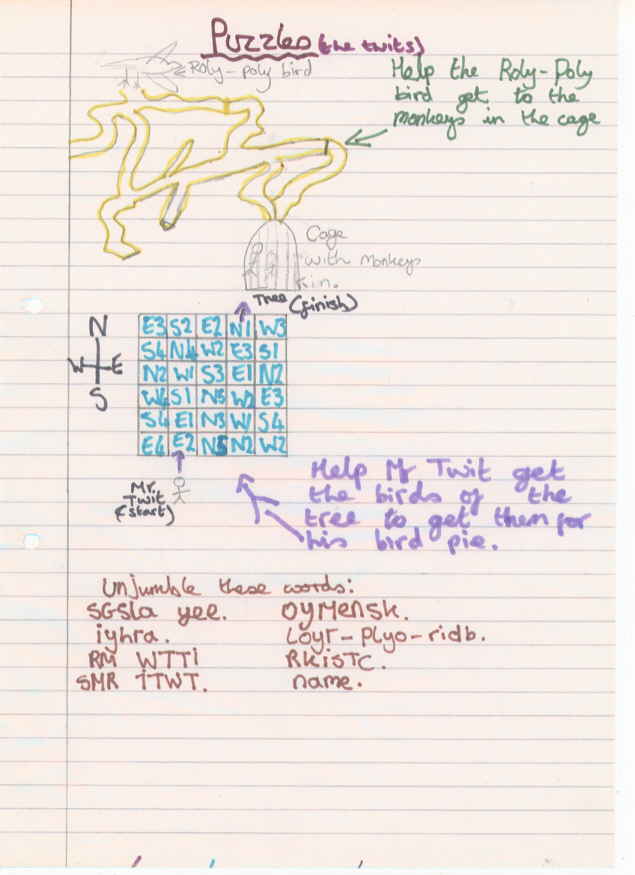 Puzzles (the twits)
Roly-poly bird
Help the Roly-Poly
bird get to the
monkeys in the cage
Cage
with monkeys
in.
Tree (finish)
N
W E
S
E3 S2 E2 N1 W3
S4 N4 W2 E3 S1
N2 W1 S3 E1 N2
W4 S1 N5 W2 E3
S4 E1 N3 W1 S4
E4 E2 N5 N2 W2
Mr.
Twit
(start)
Help Mr Twit get
the birds of the
tree to get them for
his bird pie.
Unjumble these words:
SGSla yee. oyMensk.
iyhra. Loyr-plyo-ridb.
RM WTTI RKisTC.
SMR iTWT. name.